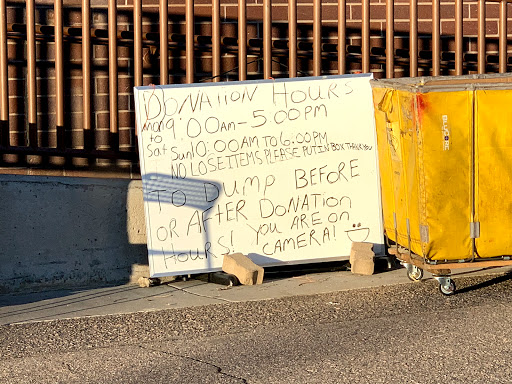 DONATION HOURS
Mon 9:00AM-5:00PM
to
Sat Sun 10:00AM TO 6:00PM
NO LOSE ITEMS PLEASE PUT IN BOX THANK YOU
TO DUMP BEFORE
OR AFTER DONATION
HOURS! YOU ARE ON
CAMERA!